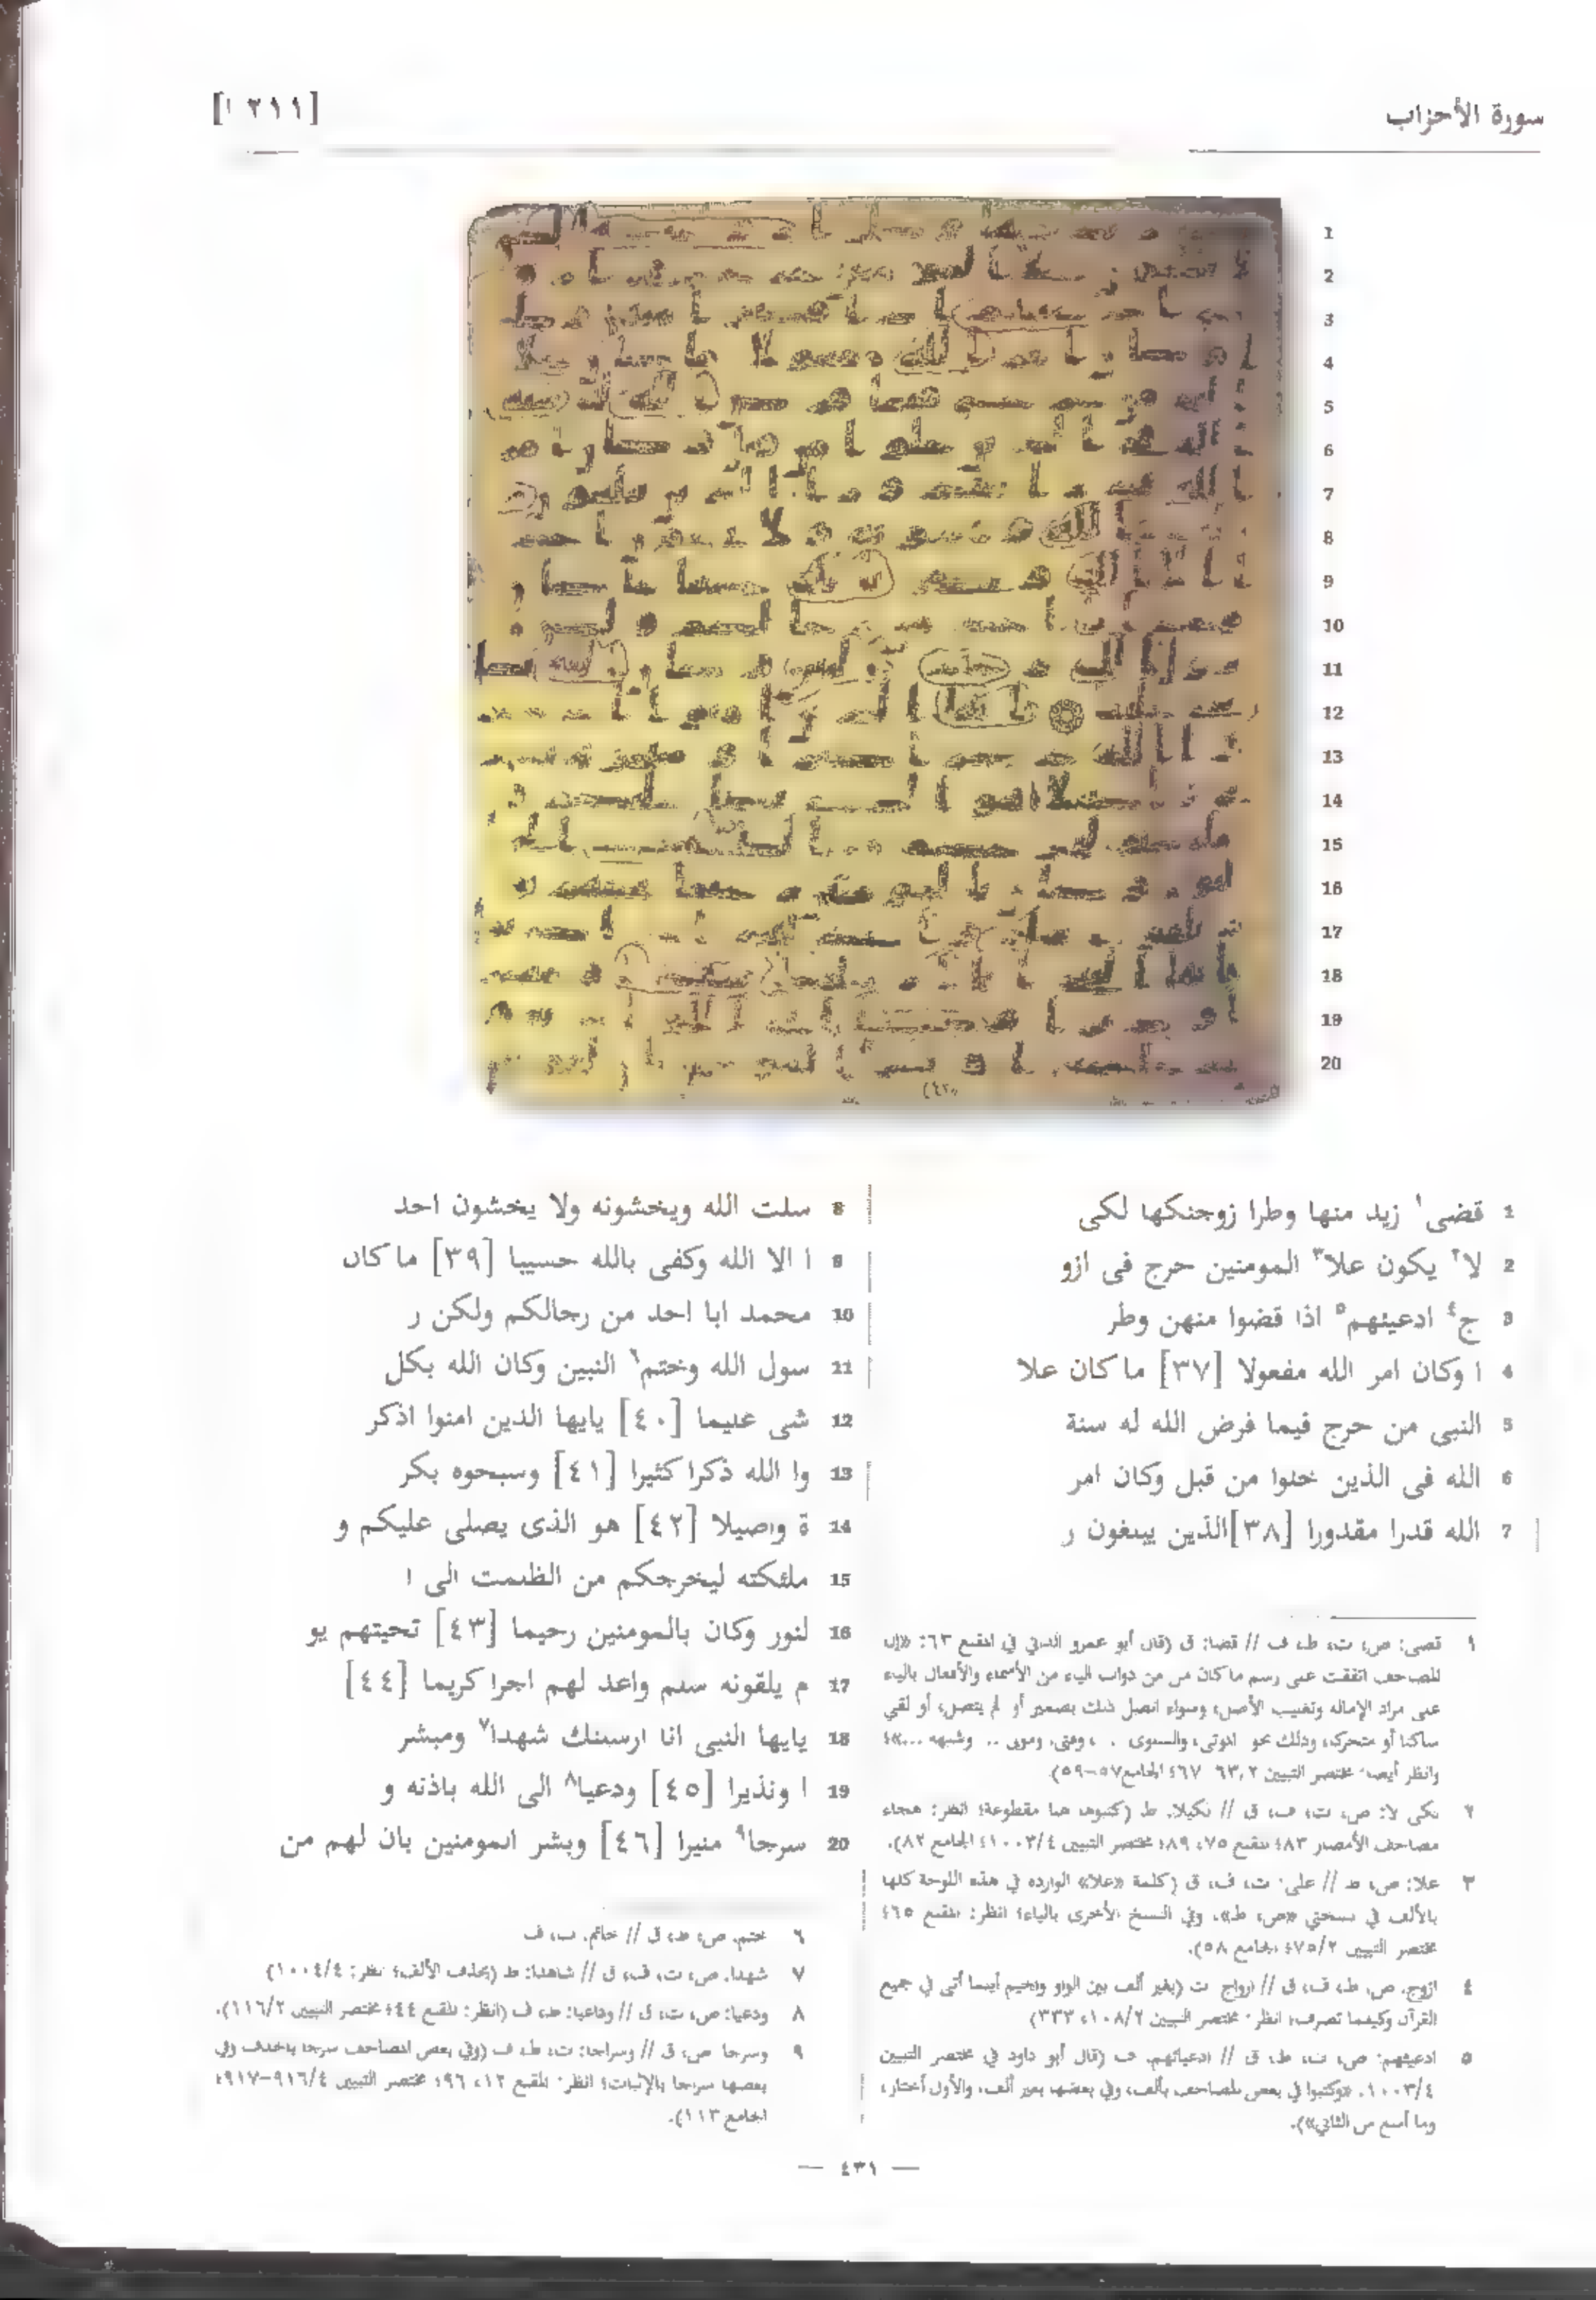 سورة الأحزاب
[٢١١ ا]
1 قضى١ زيد منها وطرا زوجنكها لكى
2 لا٢ يكون علا٣ المومنين حرج فى ازو
3 ج٤ ادعيئهم٥ اذا قضوا منهن وطر
4 ا وكان امر الله مفعولا [٣٧] ما كان علا
5 النبى من حرج فيما فرض الله له سنة
6 الله فى الذين خلوا من قبل وكان امر
7 الله قدرا مقدورا [٣٨] الذين يبلغون ر
8 سلت الله ويخشونه ولا يخشون احد
9 ا الا الله وكفى بالله حسيبا [٣٩] ما كان
10 محمد ابا احد من رجالكم ولكن ر
11 سول الله وختم٦ النبين وكان الله بكل
12 شى عليما [٤٠] يايها الذين امنوا اذكر
13 وا الله ذكرا كثيرا [٤١] وسبحوه بكر
14 ة واصيلا [٤٢] هو الذى يصلى عليكم و
15 ملئكته ليخرجكم من الظلمت الى ا
16 لنور وكان بالمومنين رحيما [٤٣] تحيتهم يو
17 م يلقونه سلم واعد لهم اجرا كريما [٤٤]
18 يايها النبى انا ارسلنك شهدا٧ ومبشر
19 ا ونذيرا [٤٥] ودعيا٨ الى الله باذنه و
20 سرجا٩ منيرا [٤٦] وبشر المومنين بان لهم من
١ قضى: ص، ت، ط، ف // قضا: ق (قال أبو عمرو الداني في المقنع ٦٣: «إن
المصاحف اتفقت على رسم ما كان من ذوات الياء من الأسماء والأفعال بالياء
على مراد الإمالة وتغليب الأصل، وسواء اتصل ذلك بضمير أو لم يتصل، أو لقي
ساكنا أو متحركا، وذلك نحو الموتى، والسلوى
وانظر أيضا: مختصر التبيين ٦٣/٢-٦٧؛ الجامع ٥٧-٥٩).
٢ لكى لا: ص، ت، ف، ق // لكيلا: ط (كتبوها هنا مقطوعة؛ انظر: هجاء
مصاحف الأمصار ٨٣؛ المقنع ٧٥، ٨٩؛ مختصر التبيين ١٠٠٣/٤؛ الجامع ٨٢).
٣ علا: ص، ط // على: ت، ف، ق (كلمة «علا» الواردة في هذه اللوحة كلها
بالألف في نسختي «ص، ط»، وفي النسخ الأخرى بالياء؛ انظر: المقنع ٦٥؛
مختصر التبيين ٧٥/٢؛ الجامع ٥٨).
٤ ازوج: ص، ط، ف، ق // ازواج: ت (بغير ألف بين الواو والجيم أينما أتى في جميع
القرآن وكيفما تصرف؛ انظر: مختصر التبيين ١٠٨/٢، ٣٣٣)
٥ ادعيئهم: ص، ت، ط، ق // ادعيائهم: ف (قال أبو داود في مختصر التبيين
١٠٠٣/٤: «وكتبوا في بعض المصاحف بألف، وفي بعضها بغير ألف، والأول أختار،
وما أمنع من الثاني»).
٦ ختم: ص، ط، ق // خاتم: ت، ف
٧ شهدا: ص، ت، ف، ق // شاهدا: ط (بحذف الألف؛ انظر: ١٠٠٤/٤)
٨ ودعيا: ص، ت، ق // وداعيا: ط، ف (انظر: المقنع ٤٤؛ مختصر التبيين ١١٦/٢).
٩ وسرجا: ص، ق // وسراجا: ت، ط، ف (وفي بعض المصاحف سرجا بالحذف وفي
بعضها سراجا بالإثبات؛ انظر: المقنع ١٢، ٩٦؛ مختصر التبيين ٩١٦/٤-٩١٧؛
الجامع ١١٣).
— ٤٣١ —